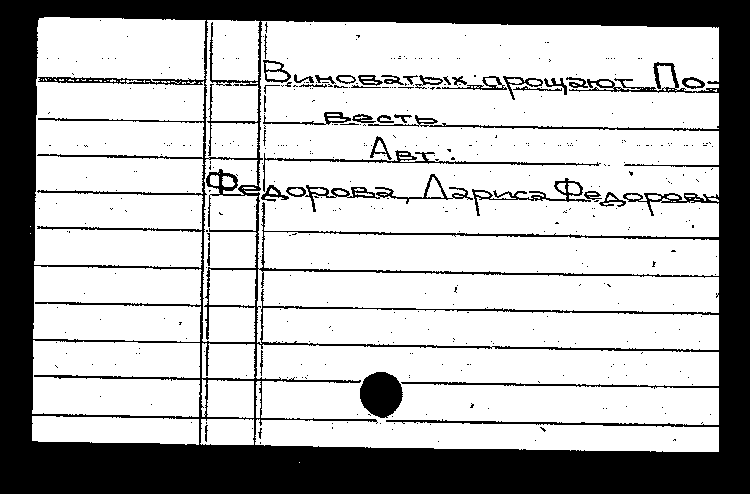 Виноватых прощают По-
весть.
Авт.:
Федорова, Лариса Федоровн